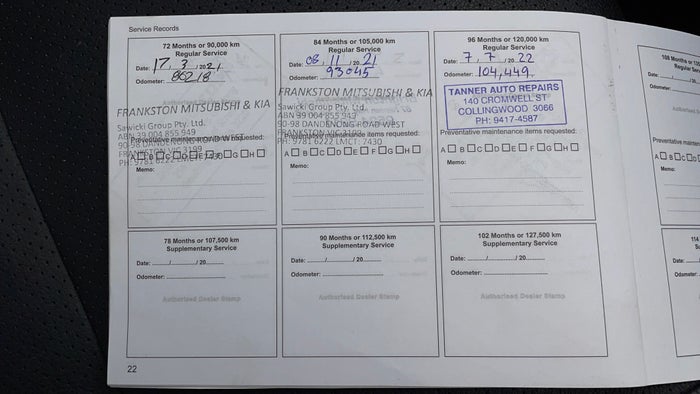 Service Records
72 Months or 90,000 km
Regular Service
Date: 17 / 3 / 2021
Odometer: 86218
FRANKSTON MITSUBISHI & KIA
Sawicki Group Pty. Ltd.
ABN 39 004 855 949
Preventative maintenance items requested:
90-98 DANDENONG ROAD WEST
FRANKSTON VIC 3199
A B C D E F G H
PH: 9781 6222 LMCT: 7430
Memo:
84 Months or 105,000 km
Regular Service
Date: 08 / 11 / 20 21
Odometer: 93045
FRANKSTON MITSUBISHI & KIA
Sawicki Group Pty. Ltd.
ABN 39 004 855 949
90-98 DANDENONG ROAD WEST
FRANKSTON VIC 3199
Preventative maintenance items requested:
PH: 9781 6222 LMCT: 7430
A B C D E F G H
Memo:
96 Months or 120,000 km
Regular Service
Date: 7 / 7 / 20 22
Odometer: 104,449
TANNER AUTO REPAIRS
140 CROMWELL ST
COLLINGWOOD 3066
PH: 9417-4587
Preventative maintenance items requested:
A B C D E F G H
Memo:
78 Months or 107,500 km
Supplementary Service
Date: / / 20
Odometer:
Authorised Dealer Stamp
90 Months or 112,500 km
Supplementary Service
Date: / / 20
Odometer:
Authorised Dealer Stamp
102 Months or 127,500 km
Supplementary Service
Date: / / 20
Odometer:
Authorised Dealer Stamp
22
108 Months or
Regular Serv
Date:
Odometer:
Preventative mainten
A B C D
Memo:
114
Date:
Odometer: